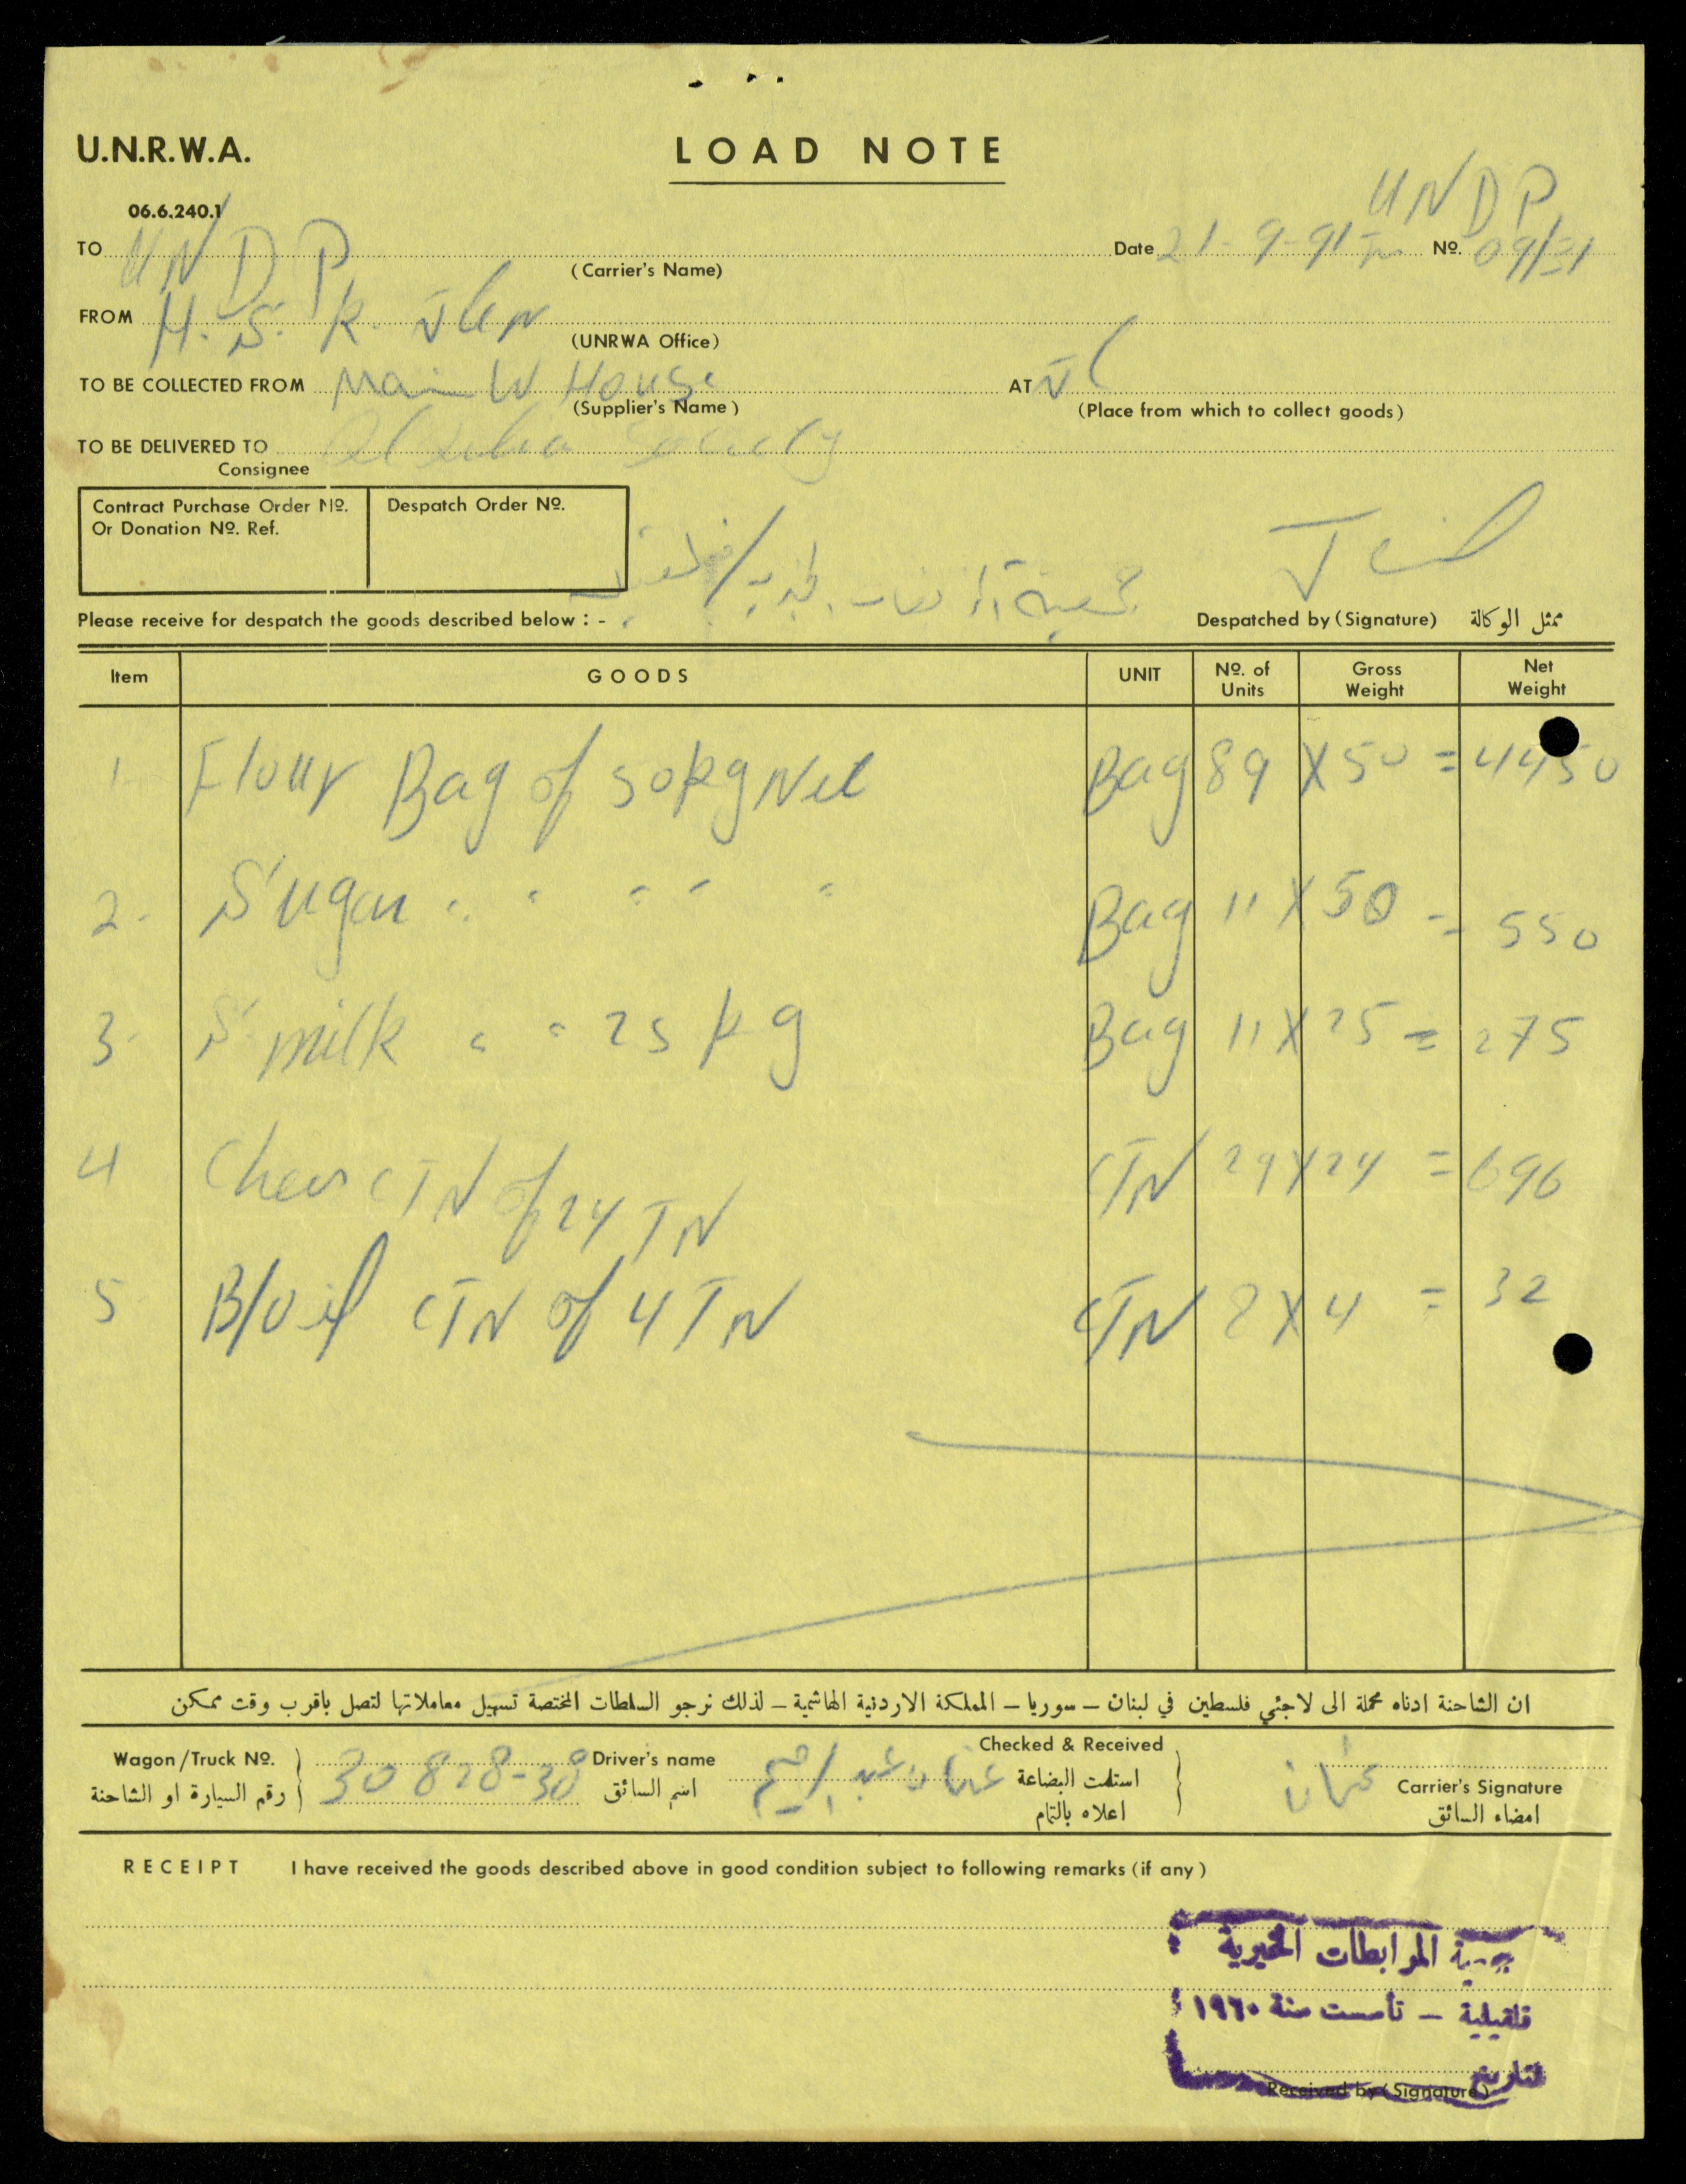 U.N.R.W.A.
LOAD NOTE
06.6.240.1
UNDP
TO UNDP
(Carrier's Name)
Date 21-9-91 Nº. 09/21
FROM H.S.K.
(UNRWA Office)
TO BE COLLECTED FROM Main W House
(Supplier's Name)
AT
(Place from which to collect goods)
TO BE DELIVERED TO Society
Consignee
Contract Purchase Order Nº.
Or Donation Nº. Ref.
Despatch Order Nº.
Please receive for despatch the goods described below : -
Despatched by (Signature) ممثل الوكالة
Item GOODS UNIT Nº. of Units Gross Weight Net Weight
1. Flour Bag of 50kg Net Bag 89 X 50 = 4450
2. Sugar " " " " " Bag 11 X 50 = 550
3. S. milk " " 25 kg Bag 11 X 25 = 275
4 CTN of 24 TN CTN 29 X 24 = 696
5 CTN of 4 TN CTN 8 X 4 = 32
ان الشاحنة ادناه محملة الى لاجئي فلسطين في لبنان – سوريا – المملكة الاردنية الهاشمية – لذلك نرجو السلطات المختصة تسهيل معاملاتها لتصل باقرب وقت ممكن
Wagon/Truck Nº. 30828-38
رقم السيارة او الشاحنة
Driver's name
اسم السائق
Checked & Received
استلمت البضاعة
اعلاه بالتمام
عثمان
Carrier's Signature
امضاء السائق
RECEIPT I have received the goods described above in good condition subject to following remarks (if any)
جمعية المرابطات الخيرية
قلقيلية – تأسست سنة ١٩٦٠
التاريخ
Received by (Signature)